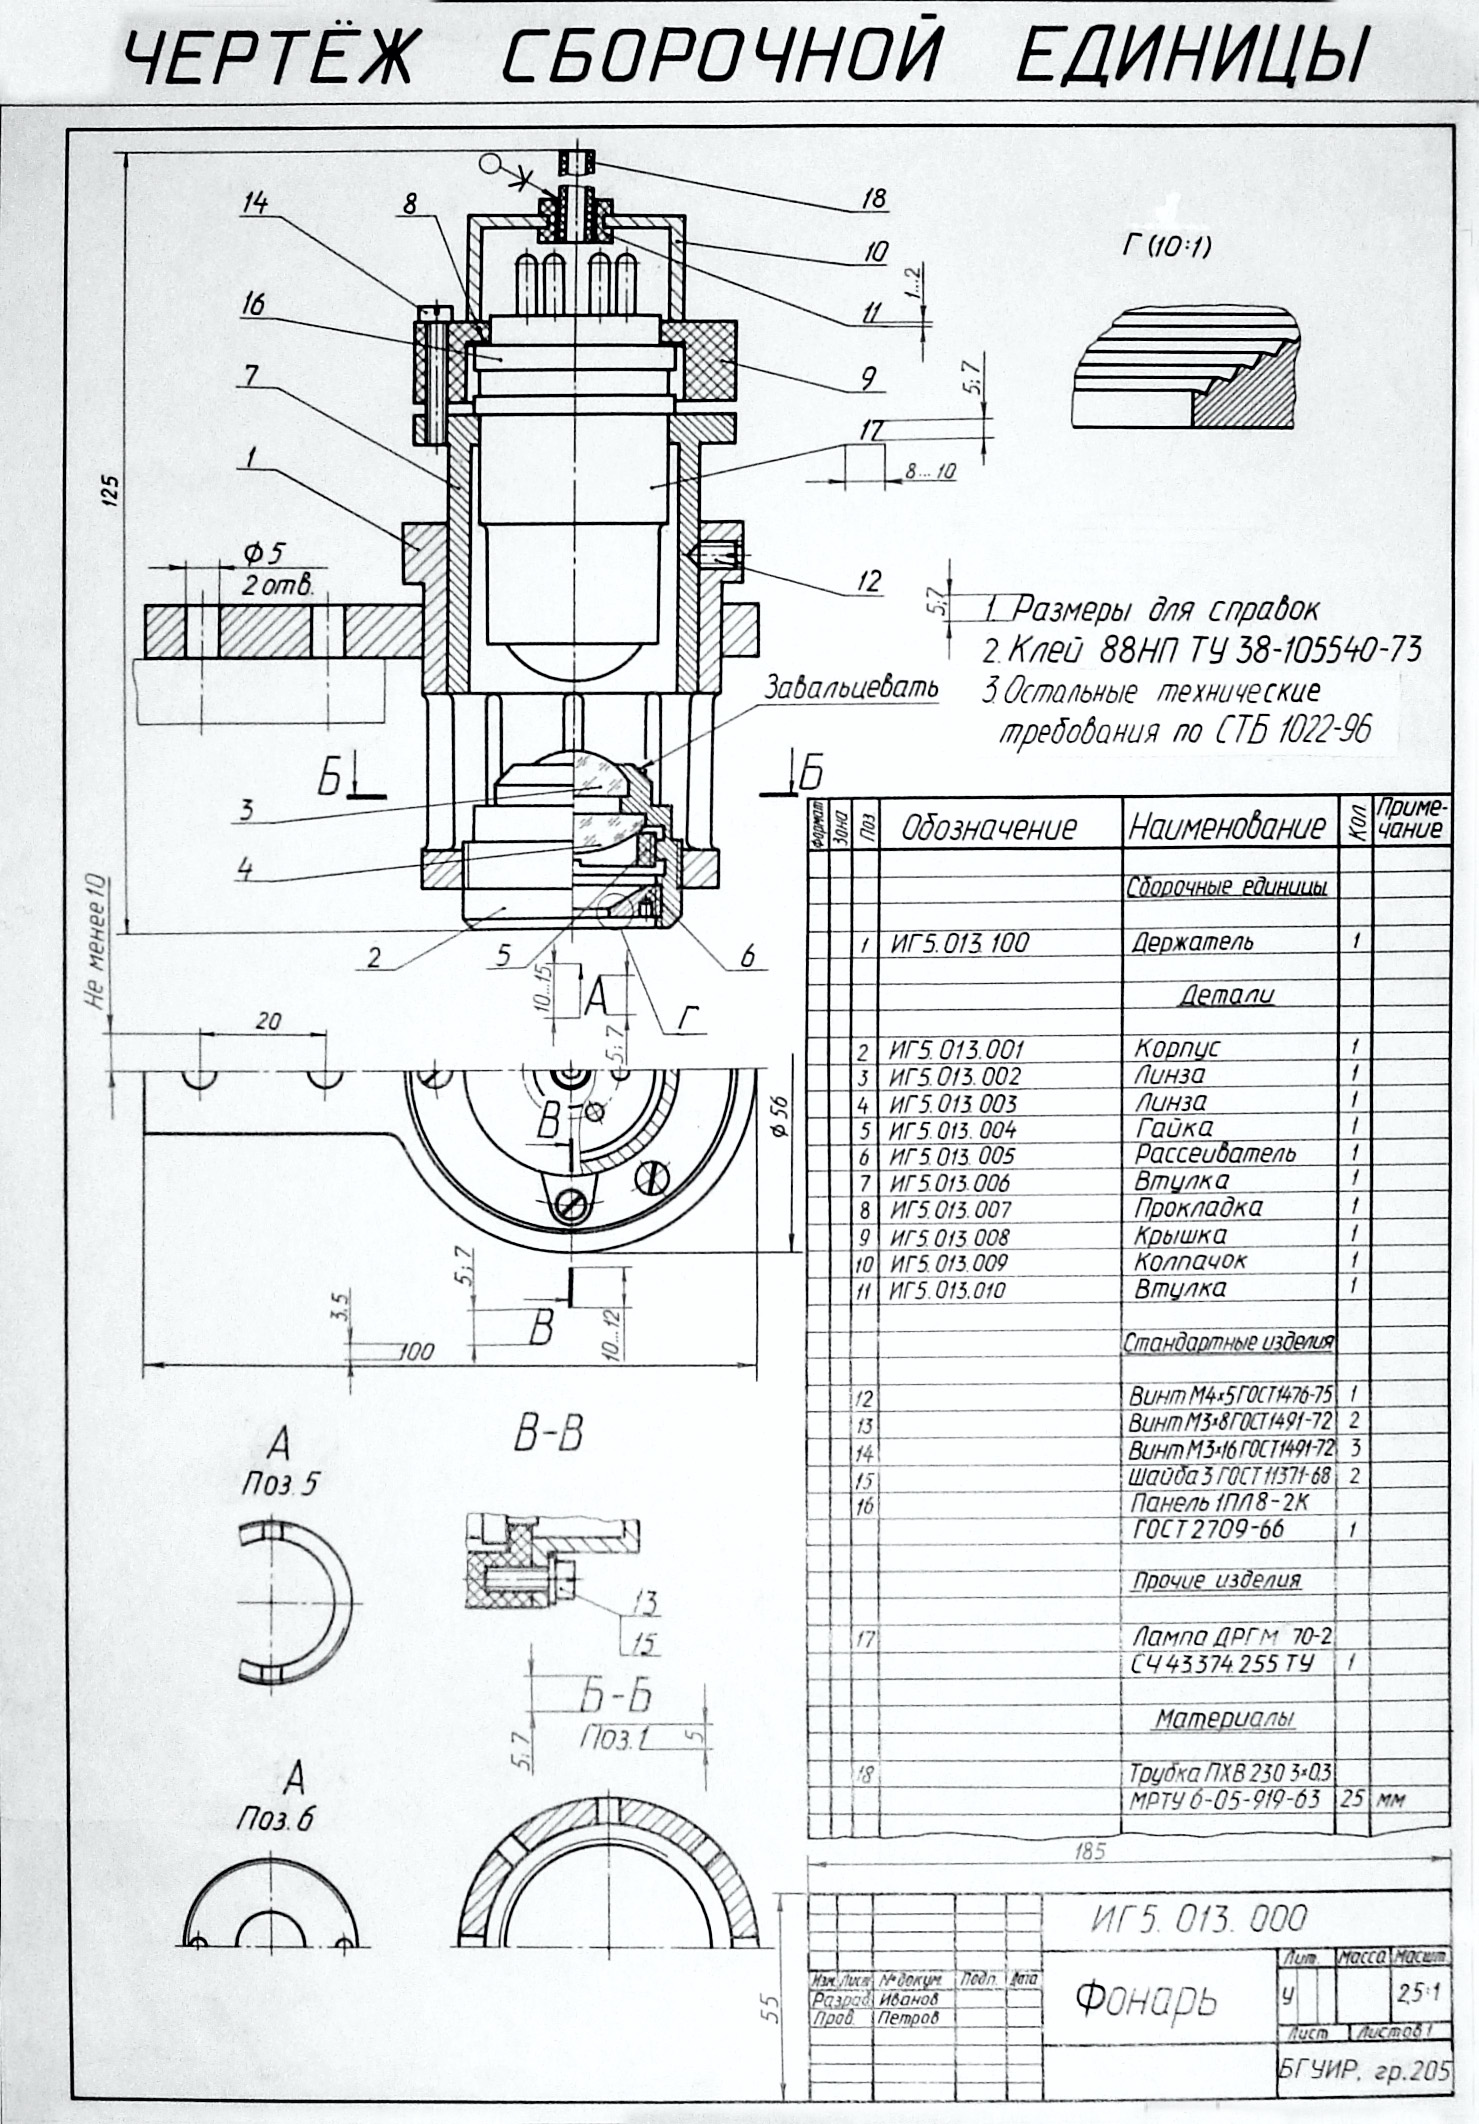 ЧЕРТЁЖ СБОРОЧНОЙ ЕДИНИЦЫ
18
14
8
10
Г (10:1)
1...2
16
11
7
9
5; 7
17
1
8...10
125
Ф5
2 отв.
12
5; 7
1. Размеры для справок
2. Клей 88НП ТУ 38-105540-73
3. Остальные технические
требования по СТБ 1022-96
Завальцевать
Б
Б
3
4
2
5
6
Не менее 10
10...15
А
5; 7
Г
20
В
Ф56
5; 7
В
10...12
3,5
100
А
Поз. 5
В-В
13
15
Б-Б
Поз. 1
5; 7
5
А
Поз. 6
Формат Зона Поз Обозначение Наименование Кол. Приме-
чание
Сборочные единицы
1 ИГ5.013.100 Держатель 1
Детали
2 ИГ5.013.001 Корпус 1
3 ИГ5.013.002 Линза 1
4 ИГ5.013.003 Линза 1
5 ИГ5.013.004 Гайка 1
6 ИГ5.013.005 Рассеиватель 1
7 ИГ5.013.006 Втулка 1
8 ИГ5.013.007 Прокладка 1
9 ИГ5.013.008 Крышка 1
10 ИГ5.013.009 Колпачок 1
11 ИГ5.013.010 Втулка 1
Стандартные изделия
12 Винт М4×5 ГОСТ 1476-75 1
13 Винт М3×8 ГОСТ 1491-72 2
14 Винт М3×16 ГОСТ 1491-72 3
15 Шайба 3 ГОСТ 11371-68 2
16 Панель 1ПЛ8-2К
ГОСТ 2709-66 1
Прочие изделия
17 Лампа ДРГМ 70-2
СЧ 43.374.255 ТУ 1
Материалы
18 Трубка ПХВ 230 3×0,3
МРТУ 6-05-919-63 25 мм
185
55
ИГ5.013.000
Лит. Масса Масшт.
Изм. Лист № докум. Подп. Дата
Разраб. Иванов
Пров. Петров
Фонарь
У 2,5:1
Лист Листов 1
БГУИР, гр.205